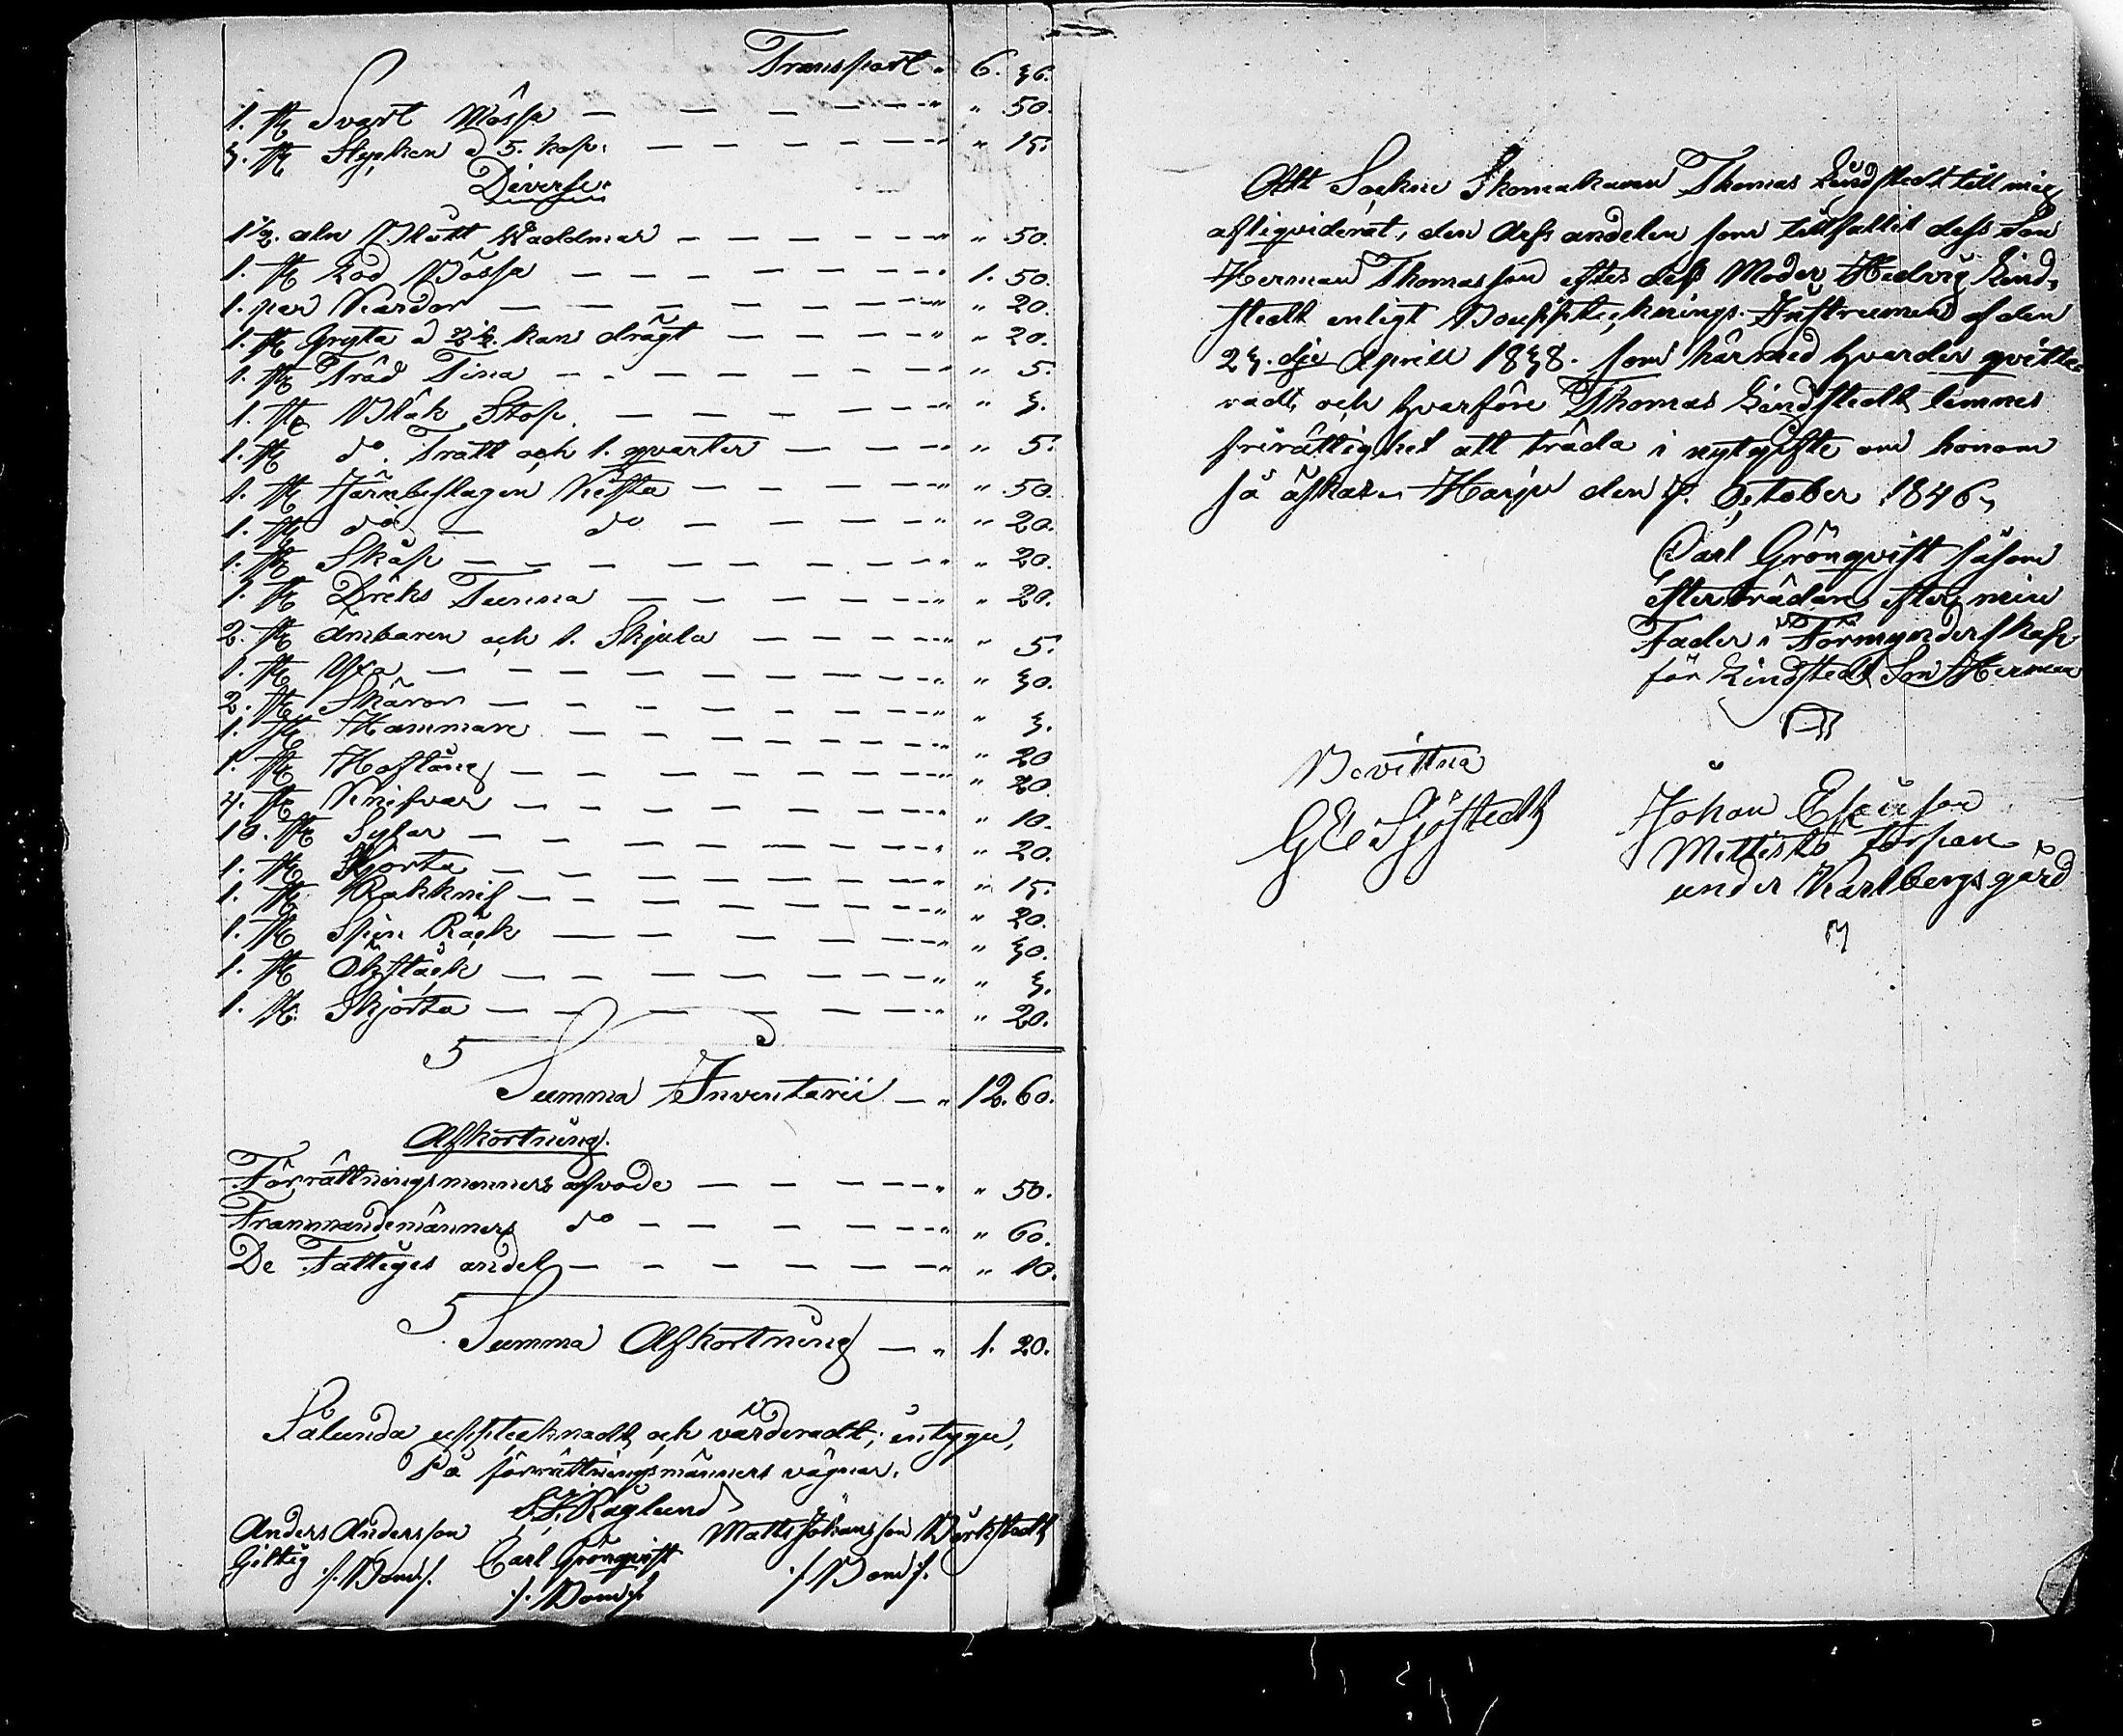 Transport " 6. 36.
1. st Svart Mössa " " 50.
3. st Stycken à 5. kop: " " 15.
Diverse:
1 1/2. aln Blått Waddmar " " 50.
1. st Lod Bössa " 1. 50.
1. par Kardor " " 20.
1. st Gryta à 2 1/2. kan drägt " " 20.
1. st Träd Tina " " 5.
1. st Bläk Stop " " 3.
1. st do. Tratt och 1. qvarter " " 5.
1. st Järnbeslagen Kista " " 50.
1. st do — do " " 20.
1. st Skåp " " 20.
1. st Dricks Tunna " " 20.
2. st Ämbaren och 1. Skjula " " 5.
1. st Yxa " " 30.
2. st Skäror " " 3.
1. st Hammare " " 20
1. st Hoftång " " 20.
4. st Knifvar " " 10.
10. st Sylar " " 20.
1. st Skjorta " " 15.
1. st Rakknif " " 20.
1. st Spin Råck " " 30.
1. st Ökstäck " " 3.
1. st. Skjorta " " 20.
Summa Inventarii — " 12. 60.
Afkortning.
Förrättningsmanners arfvode " " 50.
Frammandemänners do " " 60.
De Fattiges andel " " 10.
Summa Afkortning — " 1. 20.
Sålunda upptecknadt och värderadt; intyga,
På förrättningsmänners vägnar.
Raglund
Anders Andersson Carl Grönqvist Matts Johansson
Giltig /. Bond /. /. Bond /. /. Bond /.
Att Sockne Skomakaren Thomas Lindstedt till mig
afliqviderat, den Arfs andelen som tillfallit dess Son
Herman Thomasson efter dess Moder Hedvig Lind-
stedt enligt Bouppteknings Instrument af den
23. dje Aprill 1838. som härmed hvarder qvitte-
radt, och hvarföre Thomas Lindstedt lemnes
frirättighet att träda i nytgifte om honom
så åskar. Harju den 7. October 1846,
Carl Grönqvist såsom
efterträdare efter min
Fader i Förmynderskap
för Lindstedt Son Herman
Bevittna
G E Sjöstedt
Johan
torpare
under Karlbergsgård